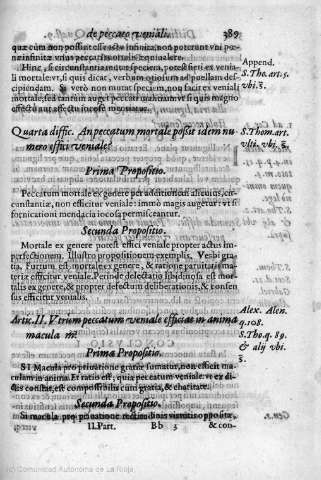 de peccato veniali. 389
quæ cum non possit esse actu infinita, non poterunt vni pœ-
næ infinitæ vnius peccati mortalis æquiualere.
Hinc, si circunstantia mutet speciem, potest fieri ex venia-
li mortale: vt, si quis dicat, verbum otiosum ad puellam deci-
piendam. Si verò non mutat speciem, non facit ex veniali
mortale, sed tantum auget peccati
affectu aut affectu
Append.
S. Tho. art. 5.
vbi. s̄.
Quarta diffic. An peccatum mortale possit idem nu
mero effici veniale?
S. Thom. art.
vlti. vbi. s̄.
Prima Propositio.
Peccatum mortale ex genere per additionem alicuius, cir-
constantiæ, non efficitur veniale: immò magis augetur: vt si
fornicationi mendacia iocosa permisceantur.
Secunda Propositio.
Mortale ex genere potest effici veniale propter actus im-
perfectionem. Illustro propositionem exemplis. Verbi gra-
tia, Furtum est mortale ex genere, & ratione paruitatis ma-
teriæ efficitur veniale. Perinde delectatio libidinosa est mor-
talis ex genere, & propter defectum deliberationis, & consen
sus efficitur venialis.
Artic. II. Vtrum peccatum veniale efficiat in anima
macula m?
Alex. Alen.
q. 108.
S. Tho. q. 89.
& alij vbi.
s̄.
Prima Propositio.
SI Macula pro priuatione gratiæ sumatur, non efficit ma-
culam in anima. Et ratio est; quia peccatum veniale ex di-
ctis constat, est compossibile cum gratia, & charitate.
Secunda Propositio.
Si macula pro priuatione rectitudinis virtuti oppositæ,
II. Part. Bb 3 & con-
(c) Comunidad Autónoma de La Rioja